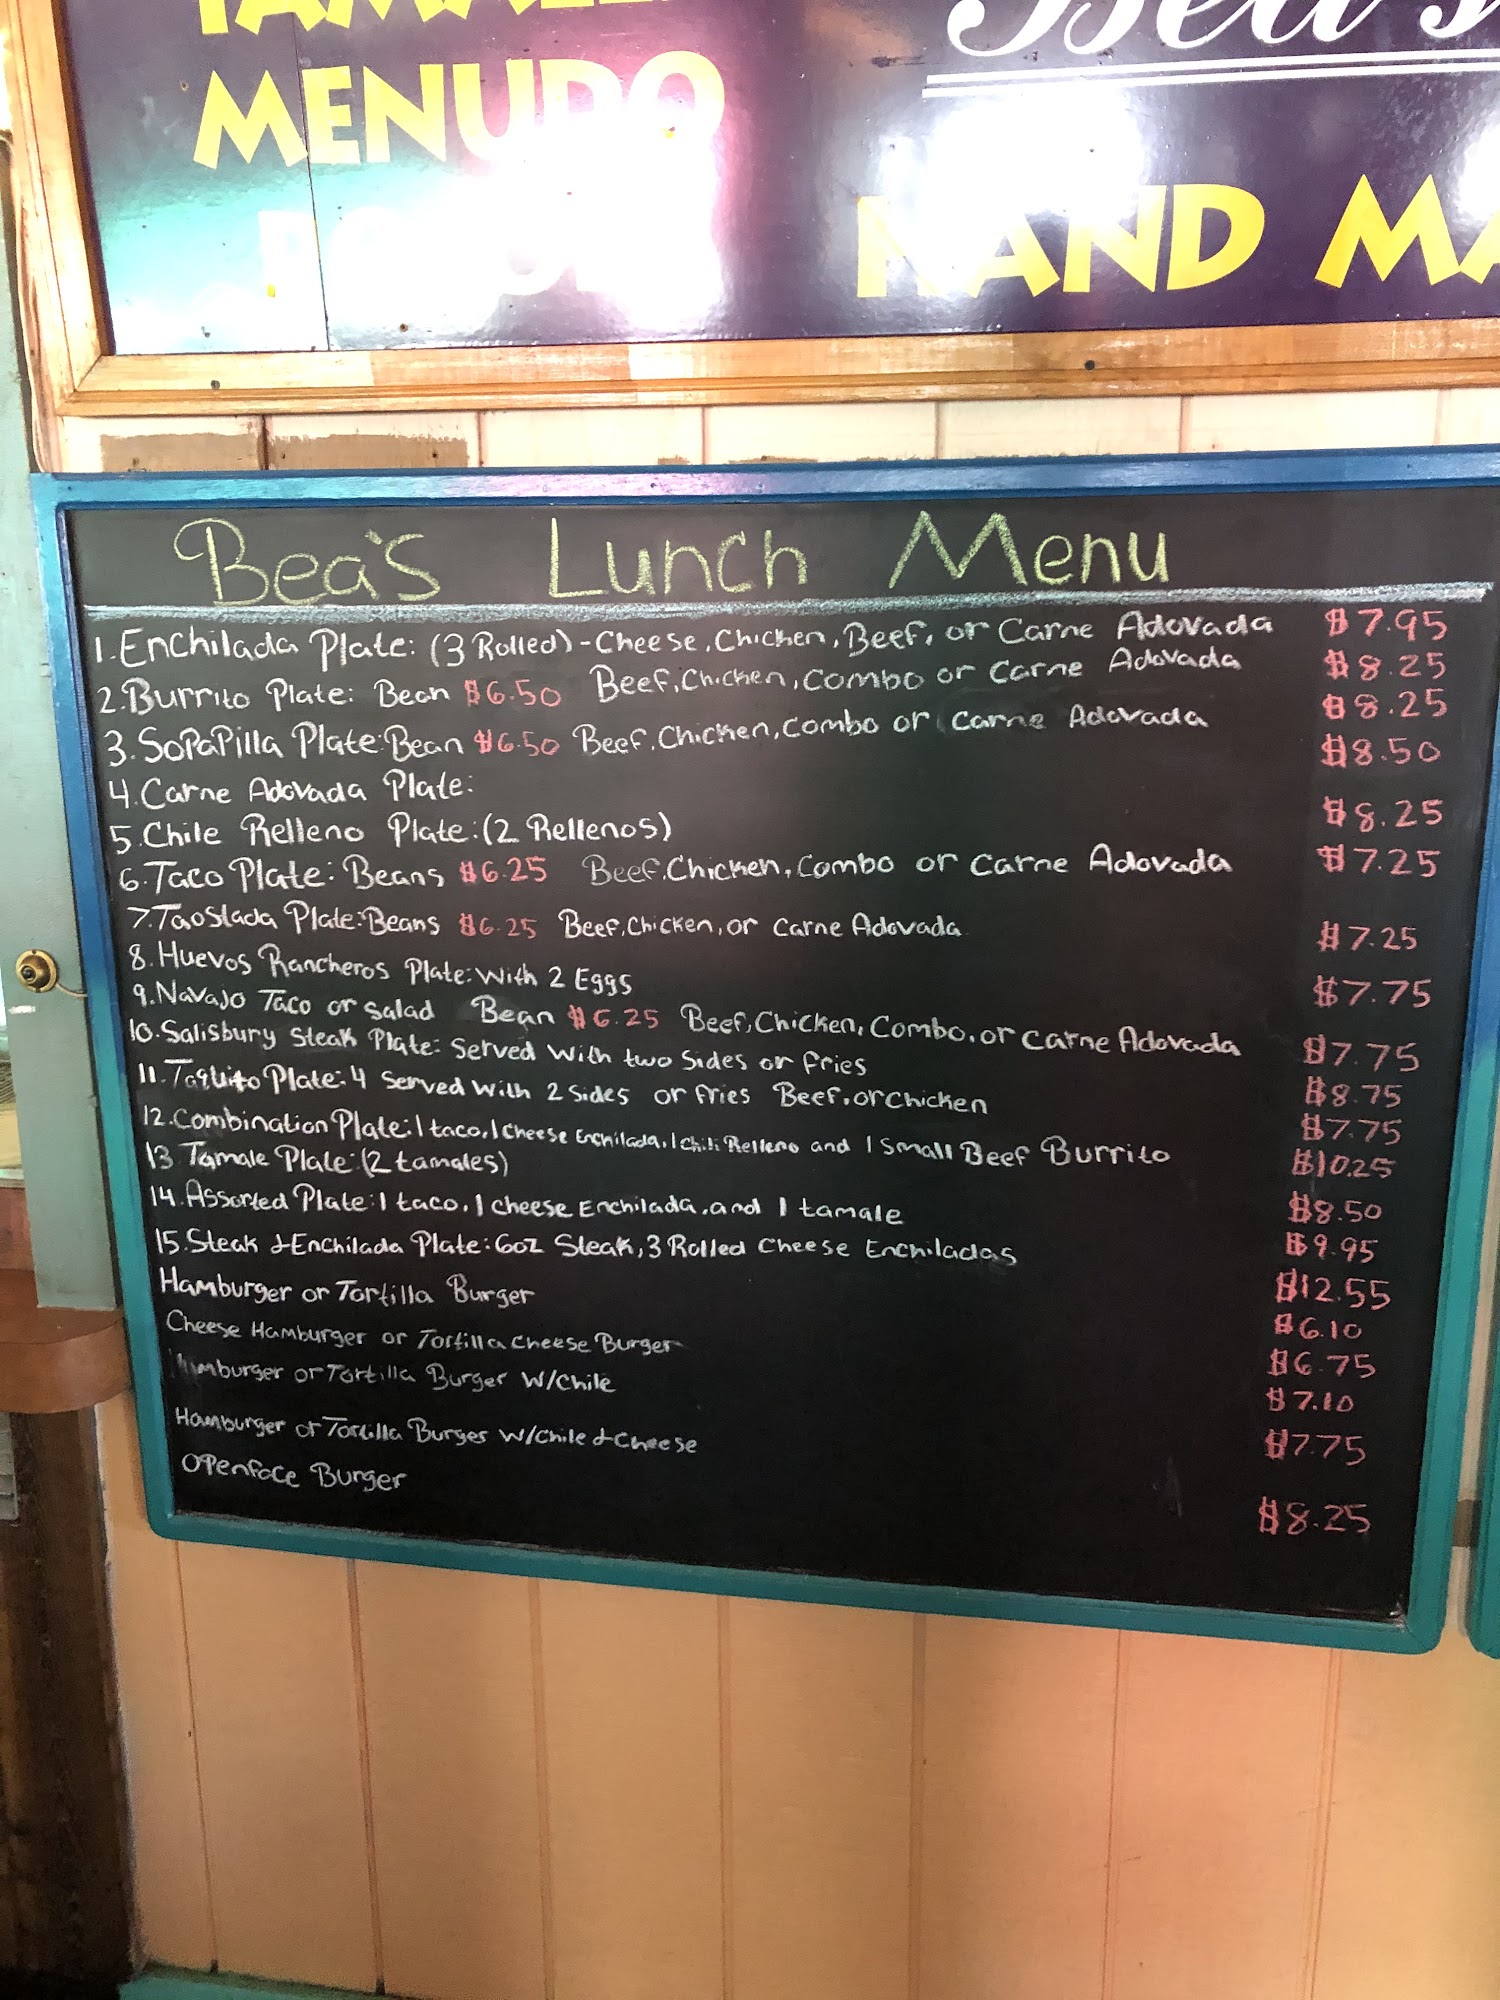 MENUDO
HAND MA
Bea's Lunch Menu
1. Enchilada Plate: (3 Rolled) - Cheese, Chicken, Beef, or Carne Adovada $7.95
2. Burrito Plate: Bean $6.50 Beef, Chicken, Combo or Carne Adovada $8.25
3. Sopapilla Plate: Bean $6.50 Beef, Chicken, Combo or Carne Adovada $8.25
4. Carne Adovada Plate: $8.50
5. Chile Relleno Plate: (2 Rellenos) $8.25
6. Taco Plate: Beans $6.25 Beef, Chicken, Combo or Carne Adovada $7.25
7. Taoslada Plate: Beans $6.25 Beef, Chicken, or Carne Adovada $7.25
8. Huevos Rancheros Plate: With 2 Eggs $7.75
9. Navajo Taco or Salad Bean $6.25 Beef, Chicken, Combo, or Carne Adovada $7.75
10. Salisbury Steak Plate: Served With two Sides or fries $8.75
11. Taquito Plate: 4 Served With 2 Sides or fries Beef, or Chicken $7.75
12. Combination Plate: 1 taco, 1 Cheese Enchilada, 1 Chili Relleno and 1 Small Beef Burrito $10.25
13. Tamale Plate: (2 tamales) $8.50
14. Assorted Plate: 1 taco, 1 cheese Enchilada, and 1 tamale $9.95
15. Steak & Enchilada Plate: 6oz Steak, 3 Rolled Cheese Enchiladas $12.55
Hamburger or Tortilla Burger $6.10
Cheese Hamburger or Tortilla Cheese Burger $6.75
Hamburger or Tortilla Burger W/Chile $7.10
Hamburger or Tortilla Burger W/Chile & Cheese $7.75
Openface Burger $8.25